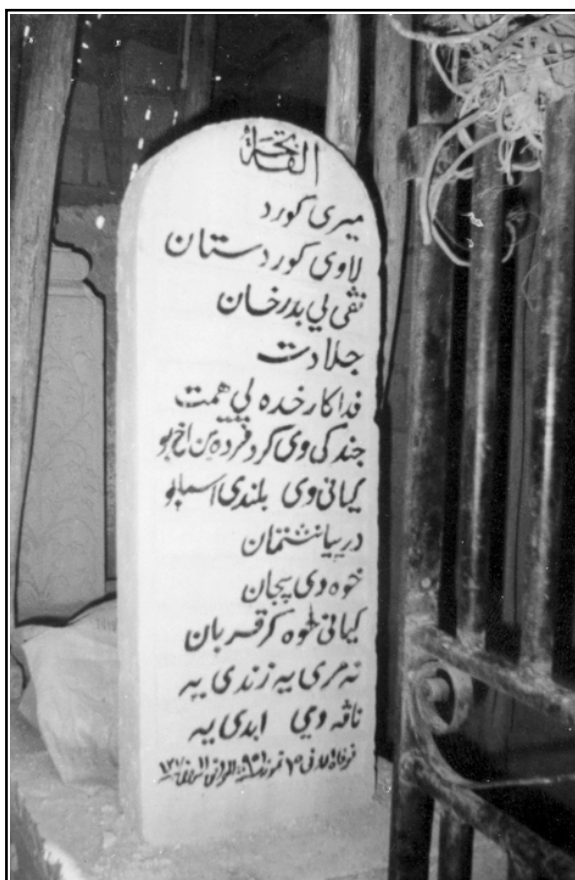 الفاتحة
ميرى كورد
لاوى كوردستان
نڤى لي بدرخان
جلادت
فداكار خده پي همت
جندكى وى كرد فرده بن اخ بو
كيانى وى بلندى اسما بو
د رييا نشتمان
خوه دى بيجان
كيانى خوه كر قربان
نه مرى يه زندى يه
ناڤه وي ابدى يه
تموز